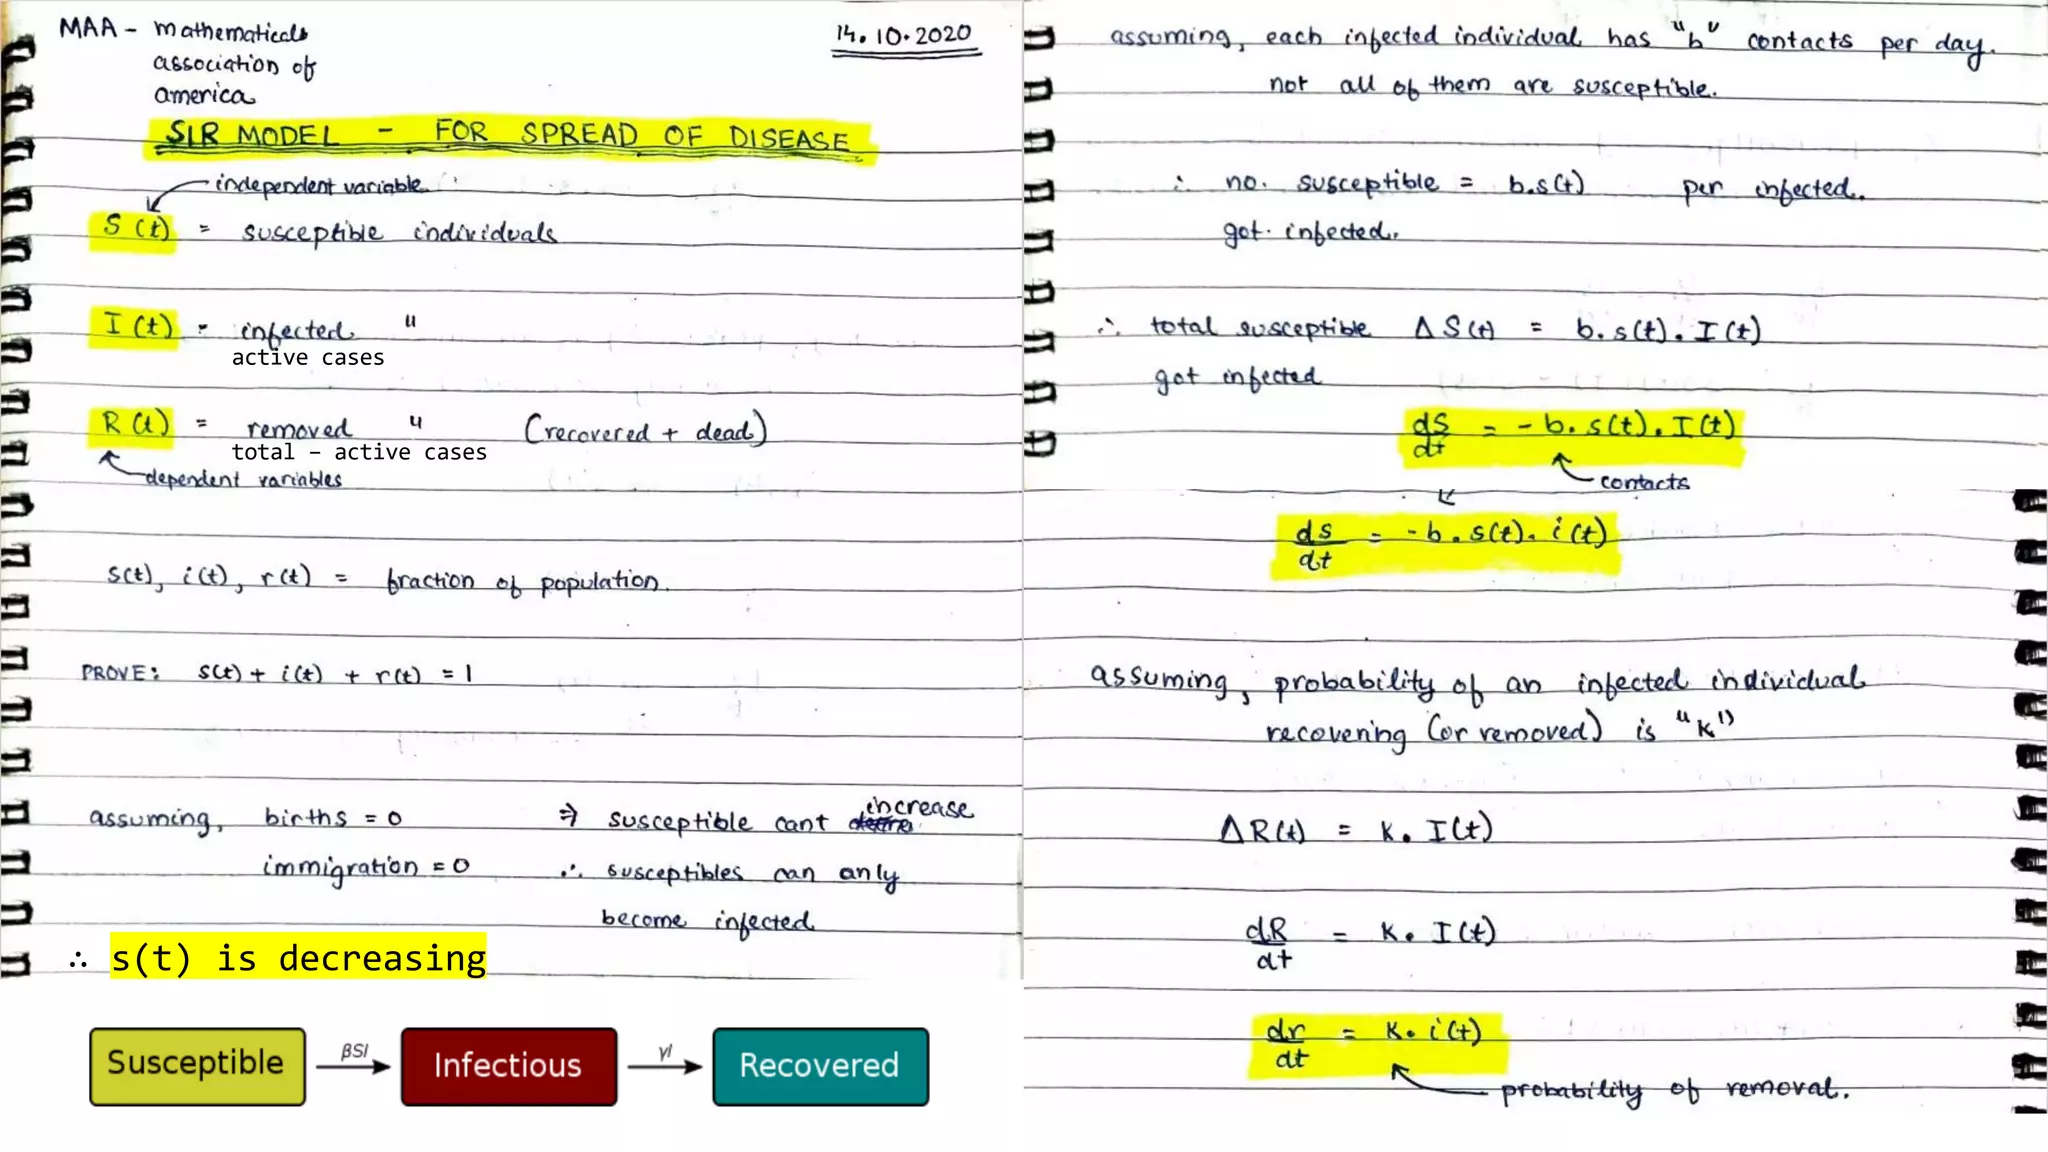 MAA - mathematical
association of
america
14.10.2020
SIR MODEL - FOR SPREAD OF DISEASE
independent variable
S(t) = susceptible individuals
I(t) = infected "
active cases
R(t) = removed " (recovered + dead)
total – active cases
dependent variables
s(t), i(t), r(t) = fraction of population.
PROVE: s(t) + i(t) + r(t) = 1
assuming, births = 0 ⇒ susceptible cant increase
immigration = 0 ∴ susceptibles can only
become infected
∴ s(t) is decreasing
Susceptible βSI Infectious γI Recovered
assuming, each infected individual has "b" contacts per day.
not all of them are susceptible.
∴ no. susceptible = b.s(t) per infected.
got infected.
∴ total susceptible ΔS(t) = b.s(t).I(t)
got infected
dS/dt = -b.s(t).I(t)
contacts
ds/dt = -b.s(t).i(t)
assuming, probability of an infected individual
recovering (or removed) is "k"
ΔR(t) = k.I(t)
dR/dt = k.I(t)
dr/dt = k.i(t)
probability of removal.